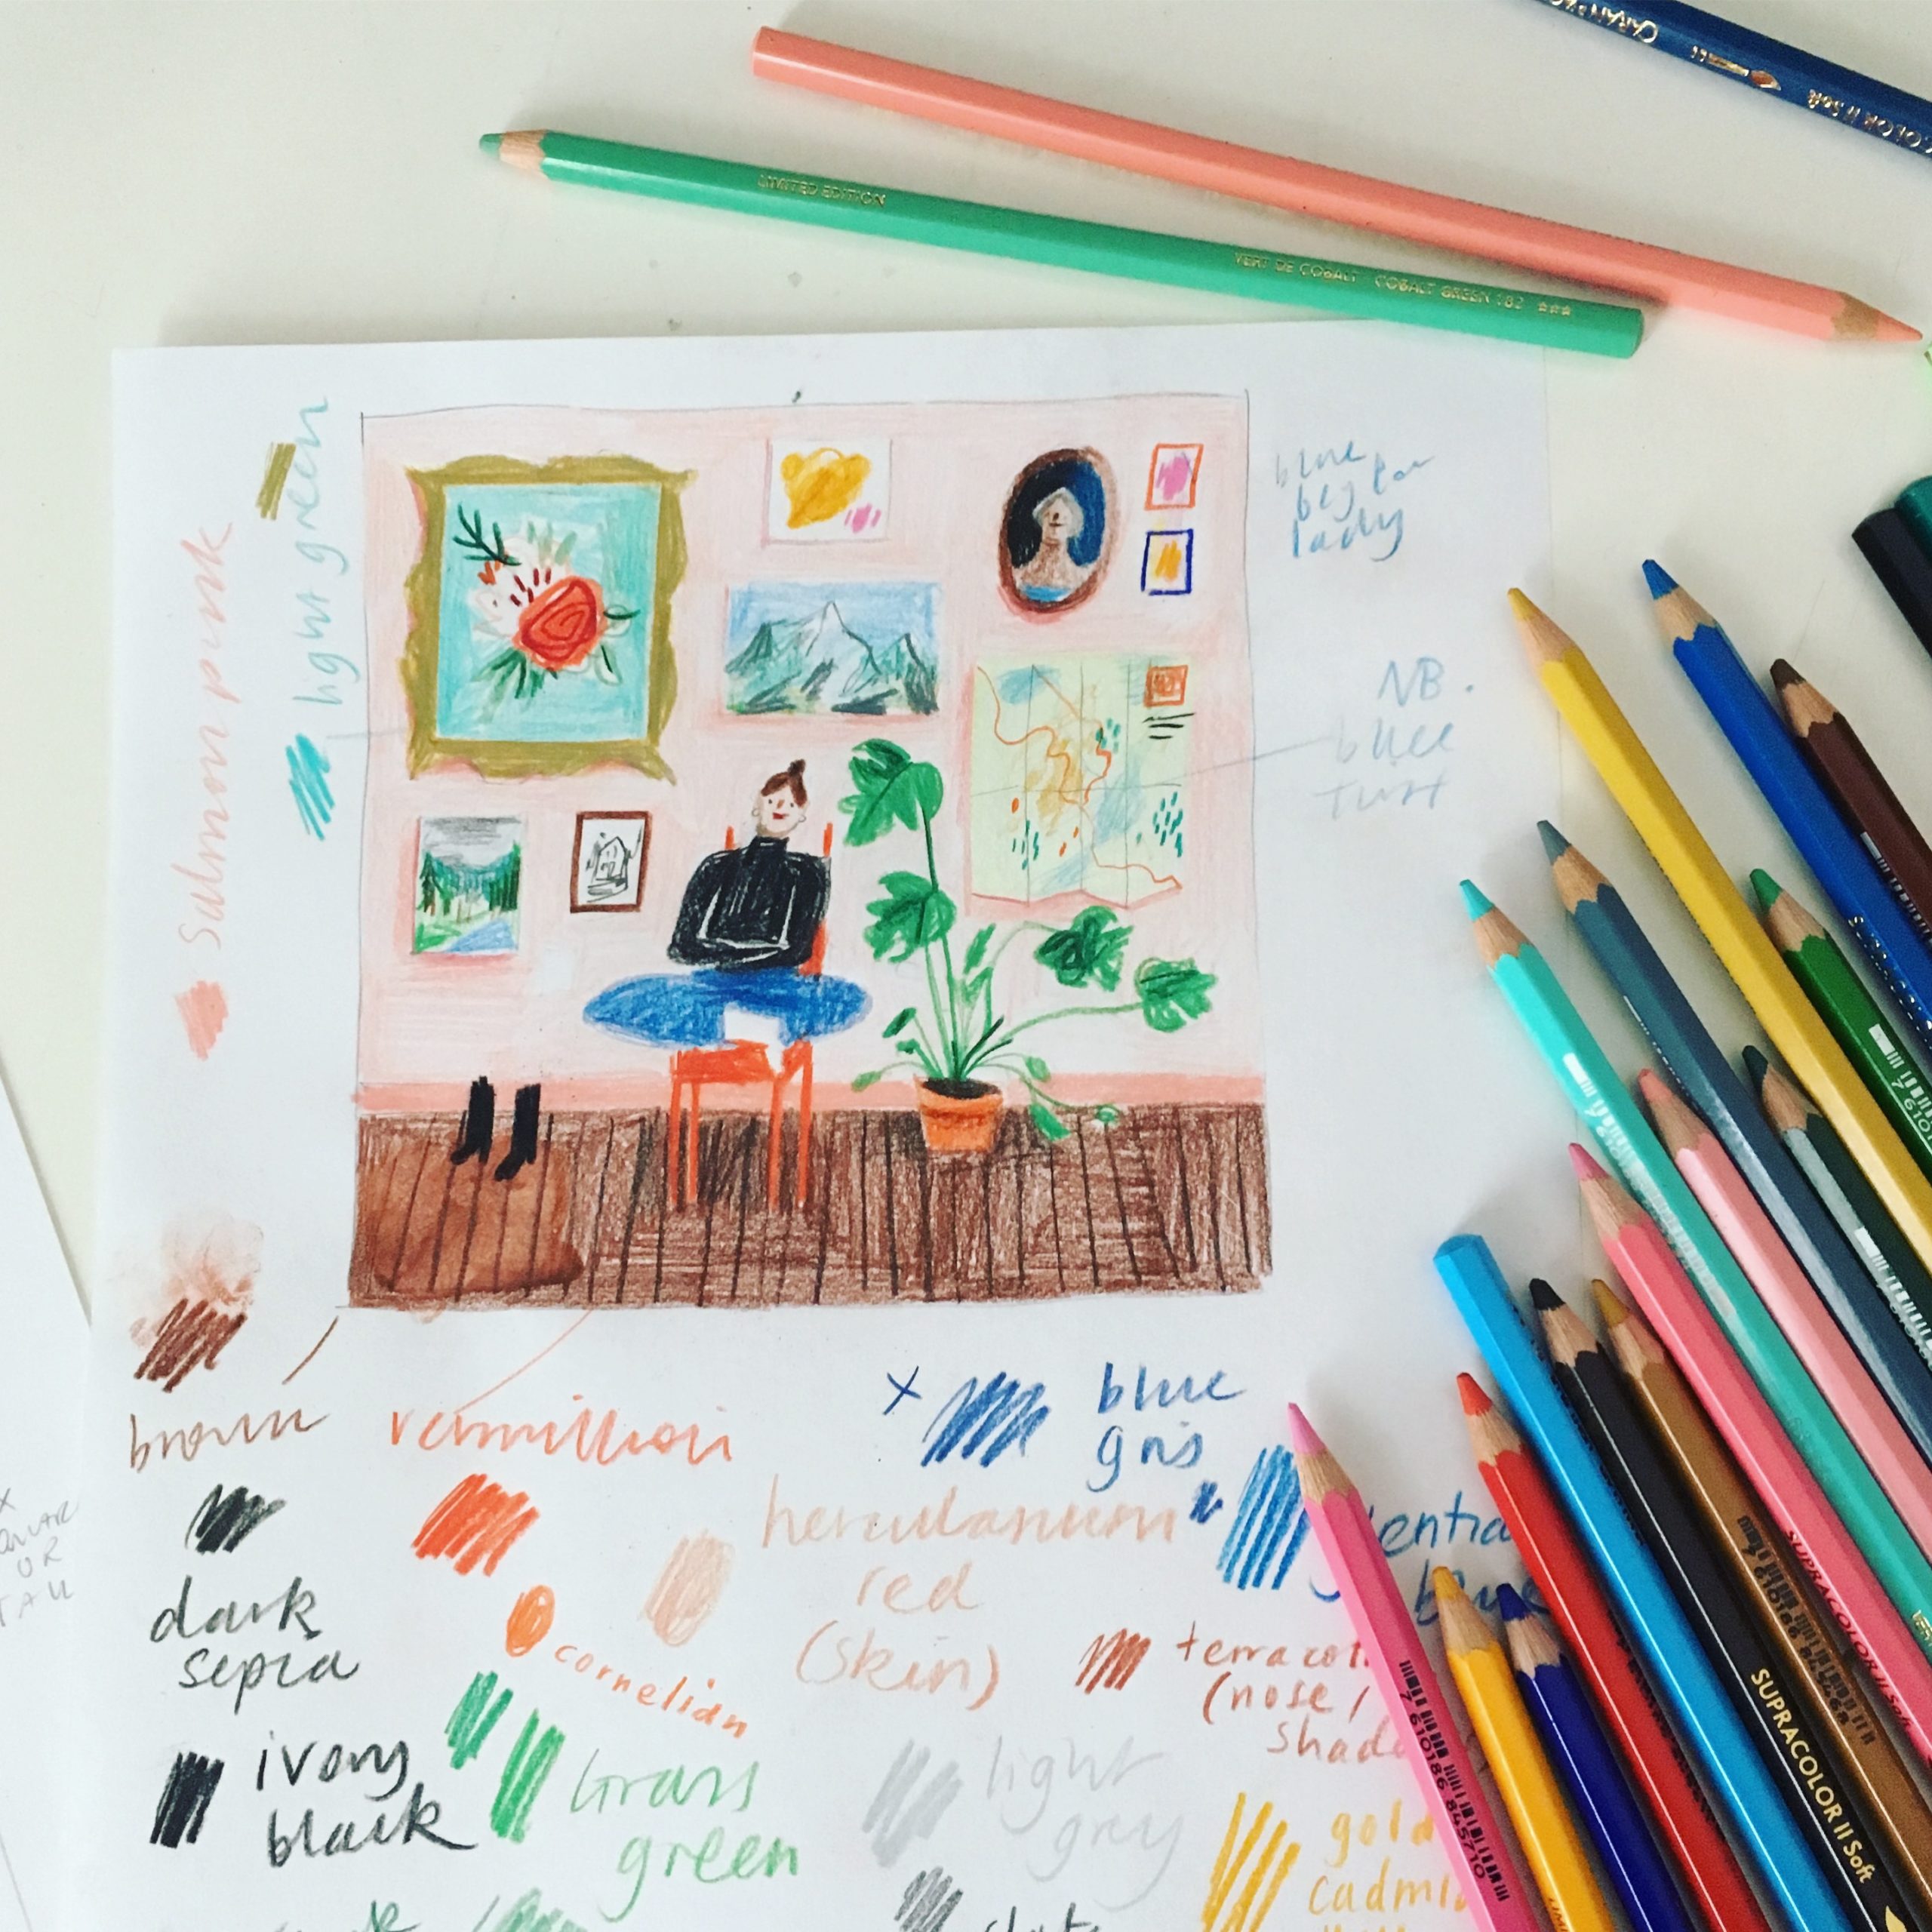 CARAN
COLOR II Soft
LIMITED EDITION
VERT DE COBALT COBALT GREEN 182 ***
light green
salmon pink
blue
bg for
lady
NB.
blue
brown
vermillion
x
blue
gris
herculanum
red
(skin)
blue
dark
sepia
cornelian
terracot
(nose/
shad
ivory
black
Grass
green
light
grey
gold
cadmi
SUPRACOLOR II Soft
SUPRACOLOR II Soft
7 610186 845710
OR